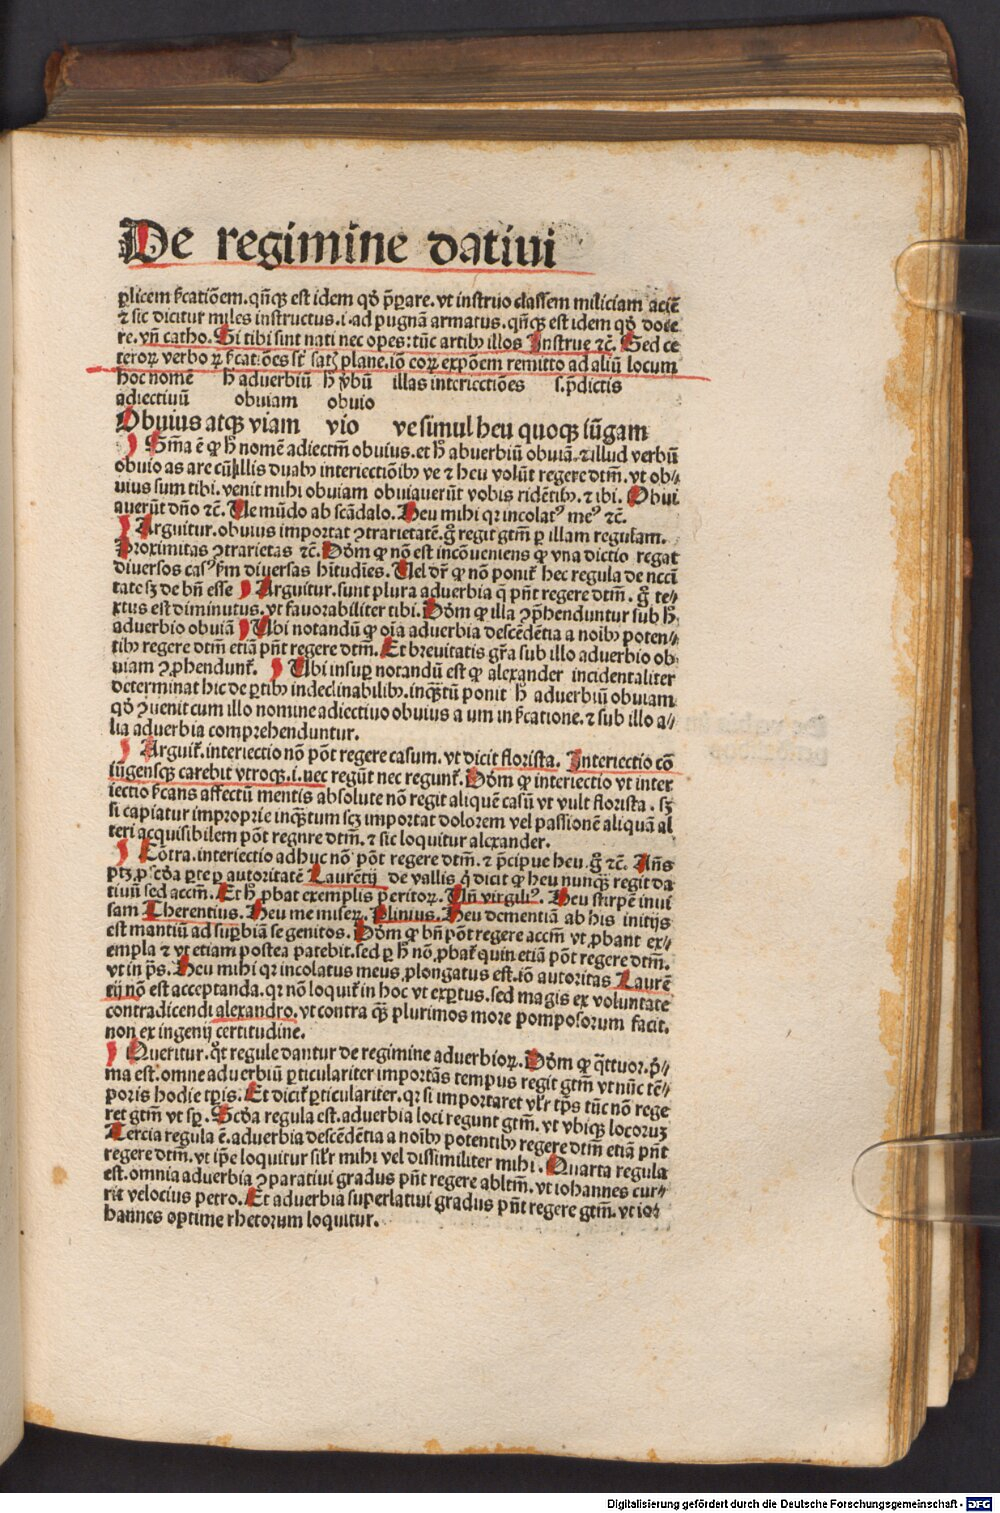 De regimine datiui
plicem ſcatiõem. qñqꝫ est idem qḋ p̄pare. vt instruo classem miliciam aciẽ
⁊ sic dicitur miles instructus. i. ad pugnã armatus. qñqꝫ est idem qḋ doce
re. vñ catho. Si tibi sint nati nec opes: tũc artibꝰ illos Instrue ⁊c̃. Sed ce
teroꝝ verbo ꝝ ſcatiões st̃ satꝫ plane. iõ eoꝝ expõem remitto ad aliũ locum
hoc nomẽ h̄ aduerbiũ h̄ v̄bũ illas interiectiões s. p̄dictis
adiectiuũ obuiam obuio
Obuius atqꝫ viam vio ve simul heu quoqꝫ iũgam
Sm̃a ẽ ꝙ h̄ nomẽ adiectm̃ obuius. et h̄ abuerbiũ obuiã. ⁊ illud verbũ
obuio as are cũ illis duabꝰ interiectiõibꝰ ve ⁊ heu volũt regere dtm̃. vt ob⸗
uius sum tibi. venit mihi obuiam obuiauerũt vobis ridẽtibꝰ. ⁊ ibi. Obui
auerũt dño ⁊c̃. Ue mũdo ab scãdalo. Heu mihi qꝛ incolatꝰ meꝰ ⁊c̃.
Arguitur. obuius importat ꝯtrarietatẽ. g̃ regit gtm̃ ꝑ illam regulam.
Proximitas ꝯtrarietas ⁊c̃. Dõm ꝙ nõ est incõueniens ꝙ vna dictio regat
diuersos casꝰ ẜm diuersas hĩtudĩes. Uel dr̃ ꝙ nõ ponit᷑ hec regula de nccĩ
tate sꝫ de bñ esse Arguitur. sunt plura aduerbia q̃ pñt regere dtm̃. g̃ te⸗
xtus est diminutus. vt fauorabiliter tibi. Dõm ꝙ illa ꝯp̃henduntur sub h̄
aduerbio obuiã Ubi notandũ ꝙ oĩa aduerbia descẽdẽtia a noĩbꝰ poten⸗
tibꝰ regere dtm̃ etiã pñt regere dtm̃. Et breuitatis gr̃a sub illo aduerbio ob
uiam ꝯprehendunt᷑. Ubi insuꝑ notandũ est ꝙ alexander incidentaliter
determinat hic de ꝑtibꝰ indeclinabilibꝰ. inqꝫtũ ponit h̄ aduerbiũ obuiam
qḋ ꝯuenit cum illo nomine adiectiuo obuius a um in ſcatione. ⁊ sub illo a⸗
lia aduerbia comprehenduntur.
Arguit᷑. interiectio nõ põt regere casum. vt dicit florista. Interiectio cõ
iũgensqꝫ carebit vtroqꝫ. i. nec regũt nec regunt᷑. Dõm ꝙ interiectio vt inter
iectio ſcans affectũ mentis absolute nõ regit aliquẽ casũ vt vult florista. sꝫ
si capiatur improprie inqꝫtum scꝫ importat dolorem vel passionẽ aliquã al
teri acquisibilem põt regnre dtm̃. ⁊ sic loquitur alexander.
Cõtra. interiectio adhuc nõ põt regere dtm̃. ⁊ p̄cipue heu. g̃ ⁊c̃. Añs
ptꝫ ꝓ scḋa ꝑte ꝑ autoritatẽ Laurẽtij de vallis q̇ dicit ꝙ heu nunqꝫ regit da
tiuũ sed accm̃. Et h̄ ꝓbat exemplis peritoꝝ. Uñ virgiliꝰ. Heu stirpẽ inui
sam Therentius. Heu me miseꝝ. Plinius. Heu dementiã ab his initijs
est mantiũ ad suꝑbiã se genitos. Dõm ꝙ bñ põt regere accm̃ vt ꝓbant ex⸗
empla ⁊ vt etiam postea patebit. sed ꝑ h̄ nõ ꝓbat᷑ quin etiã põt regere dtm̃.
vt in p̄s. Heu mihi qꝛ incolatus meus ꝓlongatus est. iõ autoritas Laurẽ
tij nõ est acceptanda. qꝛ nõ loquit᷑ in hoc vt exꝑtus. sed magis ex voluntate
contradicendi alexandro. vt contra qꝫ plurimos more pomposorum facit.
non ex ingenij certitudine.
Queritur. q̃t regule dantur de regimine aduerbioꝝ. Dõm ꝙ q̃ttuor. p̄⸗
ma est. omne aduerbiũ ꝑticulariter importãs tempus regit gtm̃ vt nũc tẽ⸗
poris hodie tp̃is. Et dicit᷑ ꝑticulariter. qꝛ si importaret vl̃r tp̃s tũc nõ rege
ret gtm̃ vt sꝑ. Scḋa regula est. aduerbia loci regunt gtm̃. vt vbiqꝫ locorum
Tercia regula ẽ. aduerbia descẽdẽtia a noĩbꝰ potentibꝰ regere dtm̃ etiã pñt
regere dtm̃. vt ip̃e loquitur sil̃r mihi vel dissimiliter mihi. Quarta regula
est. omnia aduerbia ꝯparatiui gradus pñt regere abltm̃. vt iohannes cur⸗
rit velocius petro. Et aduerbia superlatiui gradus pñt regere gtm̃. vt ioh
hannes optime rhetorum loquitur.
Digitalisierung gefördert durch die Deutsche Forschungsgemeinschaft - DFG